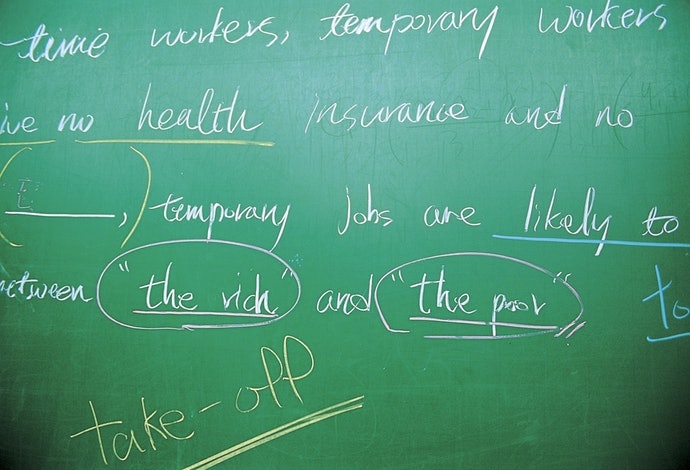 time workers, temporary workers
ive no health insurance and no
______, temporary jobs are likely to
between "the rich" and "the poor" to
take-off